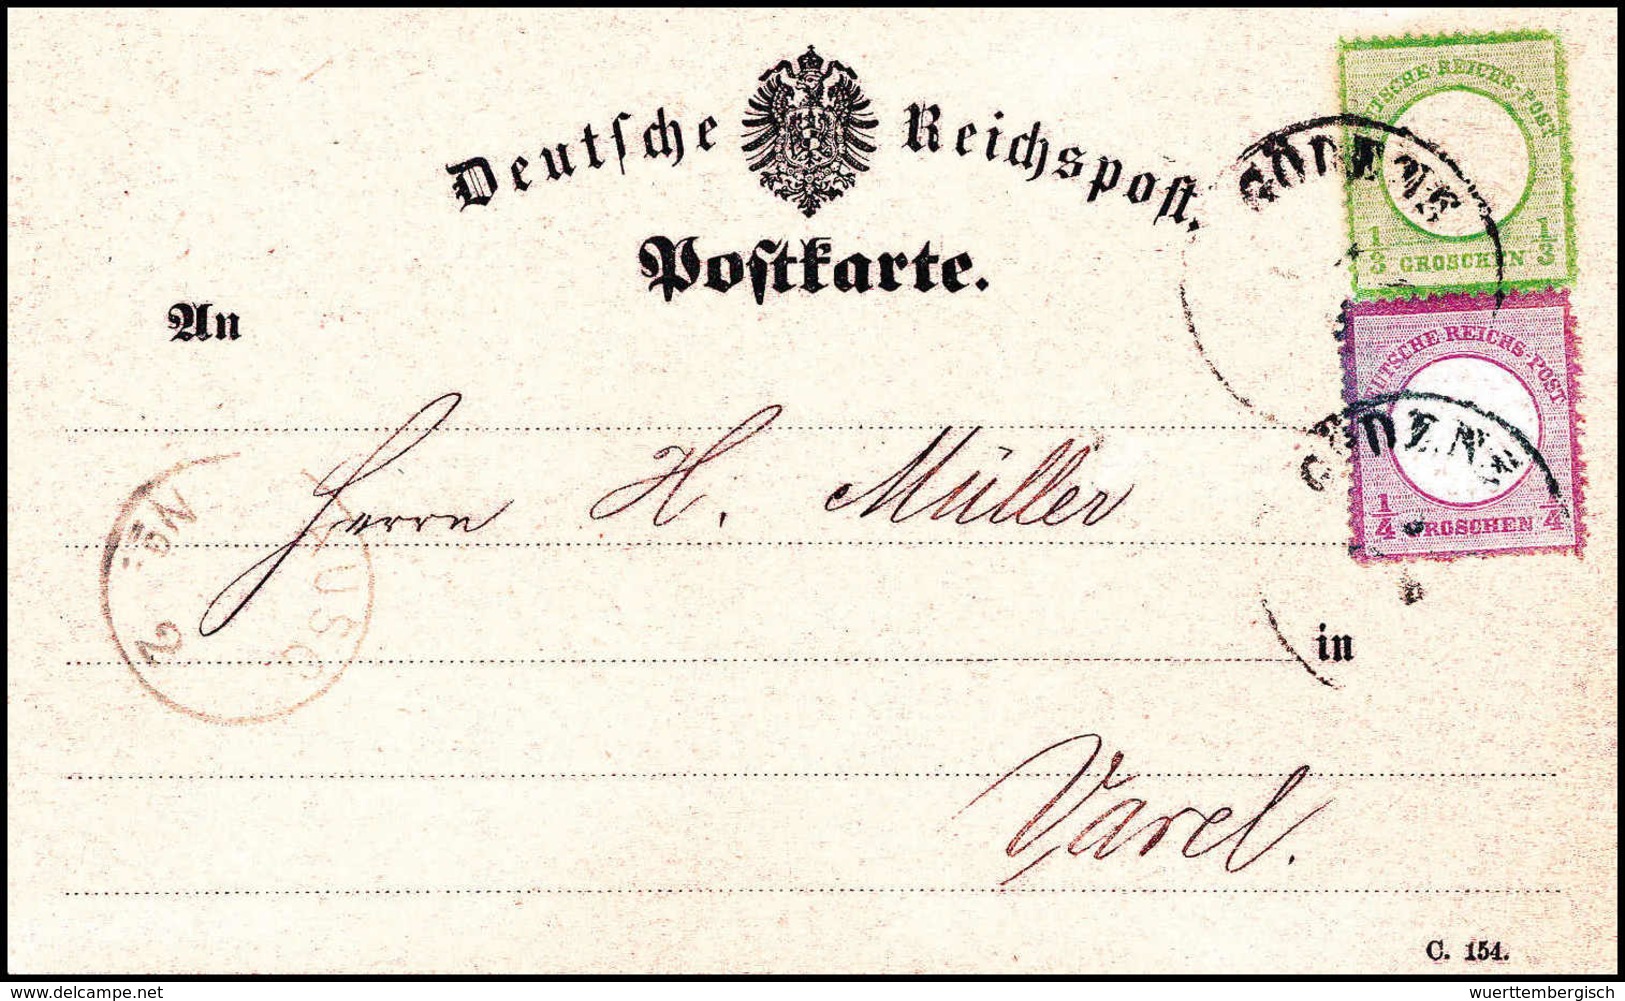 Deutsche Reichspost.
Postkarte.
An
Herrn H. Müller
in
Varel.
C. 154.
DEUTSCHE REICHS-POST
1/3 GROSCHEN 1/3
DEUTSCHE REICHS-POST
1/4 GROSCHEN 1/4
AUSG
2
delcampe.net
wuerttembergisch